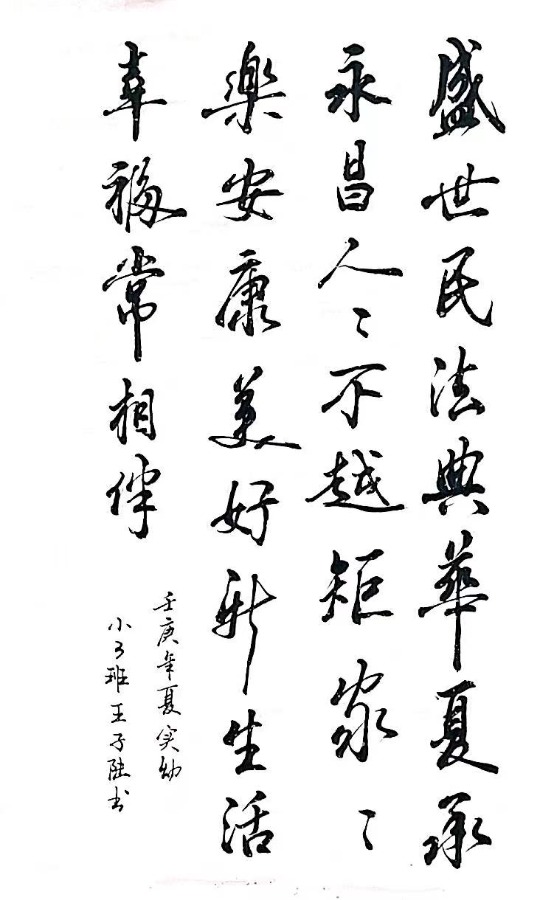 盛世民法典華夏承
永昌人々不越矩家々
樂安康美好新生活
幸福常相伴
壬庚年夏实幼
小3班王子陆书